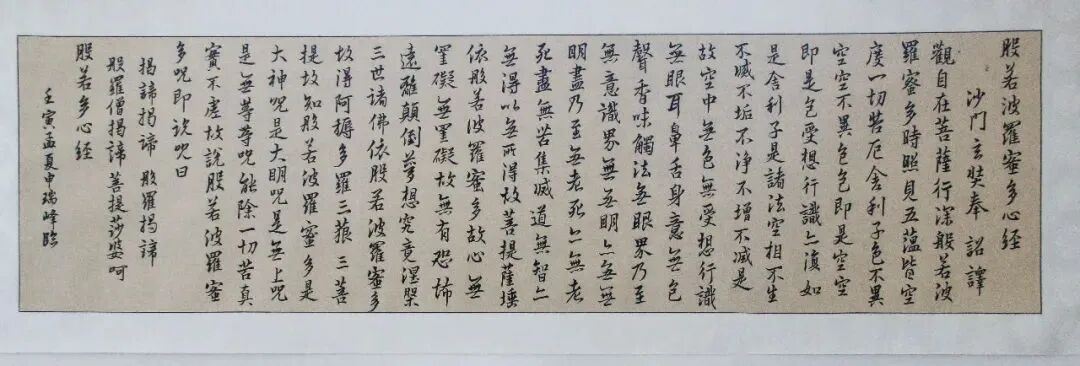 般若波羅蜜多心經
沙門玄奘奉 詔譯
觀自在菩薩行深般若波
羅蜜多時照見五蘊皆空
度一切苦厄舍利子色不異
空空不異色色即是空空
即是色受想行識亦復如
是舍利子是諸法空相不生
不滅不垢不淨不增不減是
故空中無色無受想行識
無眼耳鼻舌身意無色
聲香味觸法無眼界乃至
無意識界無無明亦無無
明盡乃至無老死亦無老
死盡無苦集滅道無智亦
無得以無所得故菩提薩埵
依般若波羅蜜多故心無
罣礙無罣礙故無有恐怖
遠離顛倒夢想究竟涅槃
三世諸佛依般若波羅蜜多
故得阿耨多羅三藐三菩
提故知般若波羅蜜多是
大神咒是大明咒是無上咒
是無等等咒能除一切苦真
實不虛故說般若波羅蜜
多咒即說咒曰
揭諦揭諦 般羅揭諦
般羅僧揭諦 菩提莎婆呵
般若多心經
壬寅孟夏申瑞峰臨